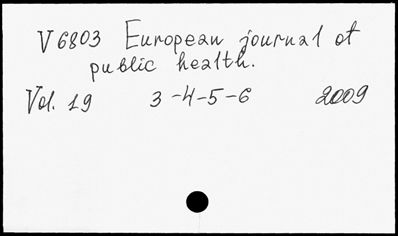 V 6803 European journal of
public health.
Vol. 19 3-4-5-6 2009